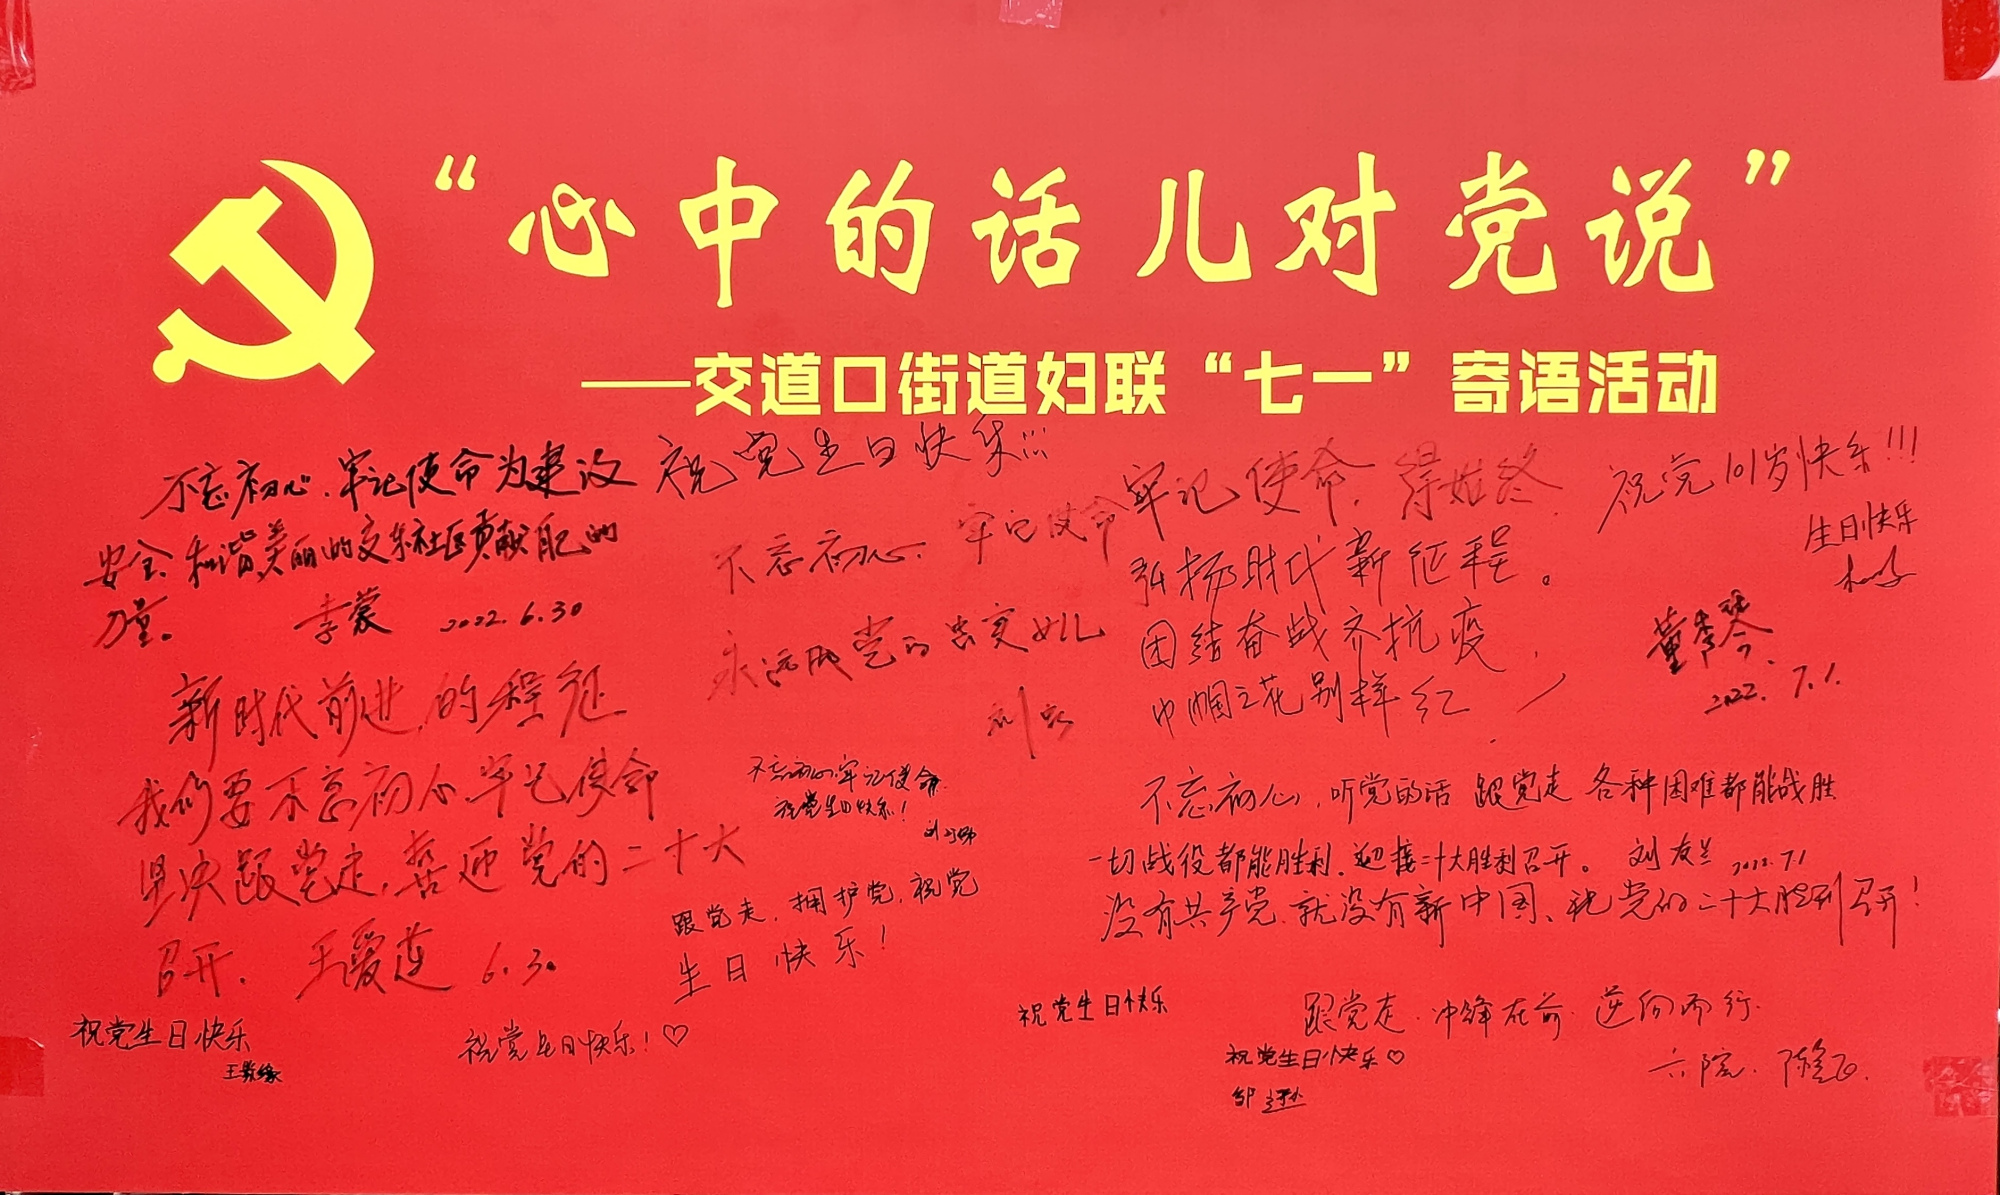 “心中的话儿对党说”
——交道口街道妇联“七一”寄语活动
不忘初心、牢记使命为建设
安全、和谐、美丽的交东社区贡献自己的
力量。
李蒙 2022.6.30
祝党生日快乐!!!
不忘初心、牢记使命
永远做党的好女儿
刘
牢记使命，得始终
弘扬时代新征程。
团结奋战齐抗疫，
巾帼之花别样红
祝党101岁快乐!!!
生日快乐
董秀琴
2022.7.1.
新时代前进的程征
我们要不忘初心牢记使命
坚决跟党走，喜迎党的二十大
召开. 王爱莲 6.30
不忘初心.牢记使命
祝党生日快乐!
跟党走，拥护党，祝党
生日快乐!
不忘初心，听党的话 跟党走 各种困难都能战胜
一切战役都能胜利。迎接二十大胜利召开。 刘友兰 2022.7.1
没有共产党、就没有新中国、祝党的二十大胜利召开!
祝党生日快乐
王
祝党生日快乐!♡
祝党生日快乐
跟党走.冲锋在前.逆向而行.
六院.
祝党生日快乐♡
邹